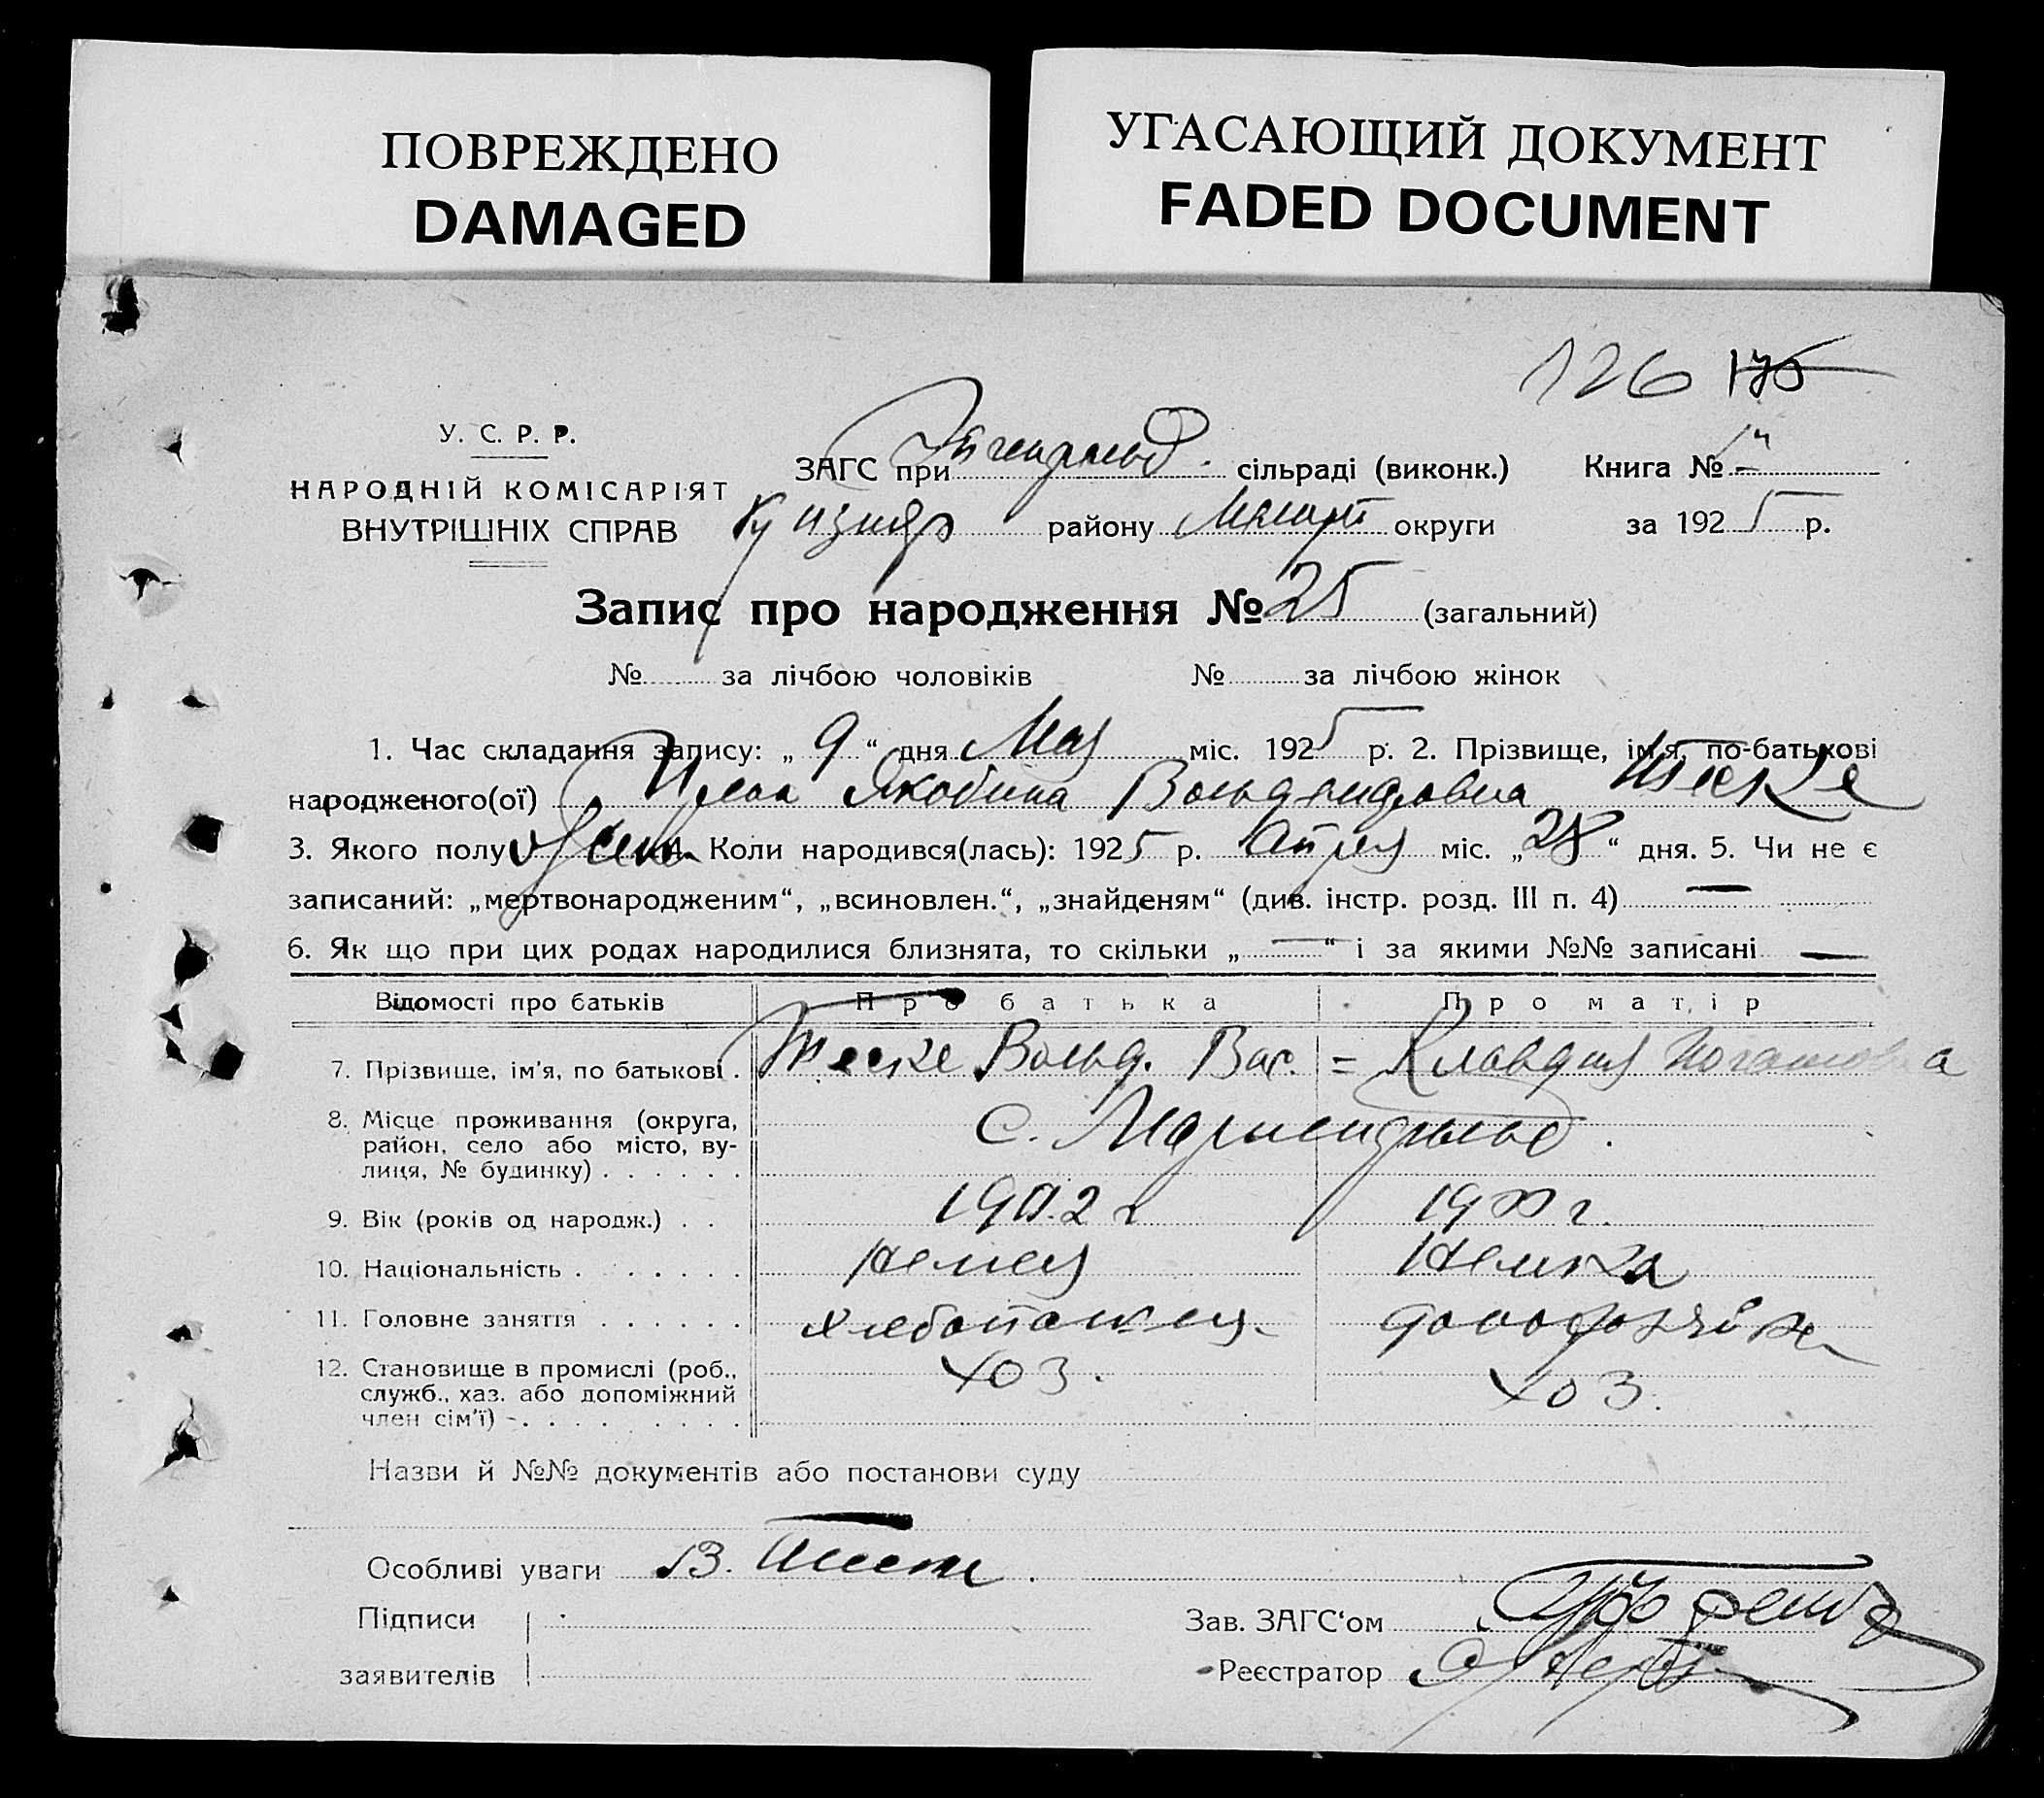 ПОВРЕЖДЕНО
DAMAGED
УГАСАЮЩИЙ ДОКУМЕНТ
FADED DOCUMENT
126 175
У. С. Р. Р.
НАРОДНІЙ КОМІСАРІЯТ
ВНУТРІШНІХ СПРАВ
ЗАГС при сільраді (виконк.) Книга №
району Мелит округи за 1925 р.
Запис про народження № 25 (загальний)
№ за лічбою чоловіків № за лічбою жінок
1. Час складання запису: „ 9 “ дня Мая міс. 1925 р. 2. Прізвище, ім'я, по-батькові
народженого(ої) Якобина Вольдемаровна Теске
3. Якого полу жен. 4. Коли народився(лась): 1925 р. Апрел міс. „28“ дня. 5. Чи не є
записаний: „мертвонародженим“, „всиновлен.“, „знайденям“ (див. інстр. розд. III п. 4) —
6. Як що при цих родах народилися близнята, то скільки „ — “ і за якими №№ записані —
Відомості про батьків Про батька Про матір
7. Прізвище, ім'я, по батькові . Теске Вольд. Вас. = Клавдия
8. Місце проживання (округа,
район, село або місто, ву-
лиця, № будинку) . . . . . . с.
9. Вік (років од народж.) . . 1902 г 1900 г.
10. Національність . . . . . . Немец Немка
11. Головне заняття . . . . . . хлебопашец домохозяйка
12. Становище в промислі (роб.,
служб., хаз. або допоміжний
член сім'ї) - . . . . . . . . . хоз. хоз.
Назви й №№ документів або постанови суду
Особливі уваги В.
Підписи
заявителів
Зав. ЗАГС'ом
Реєстратор